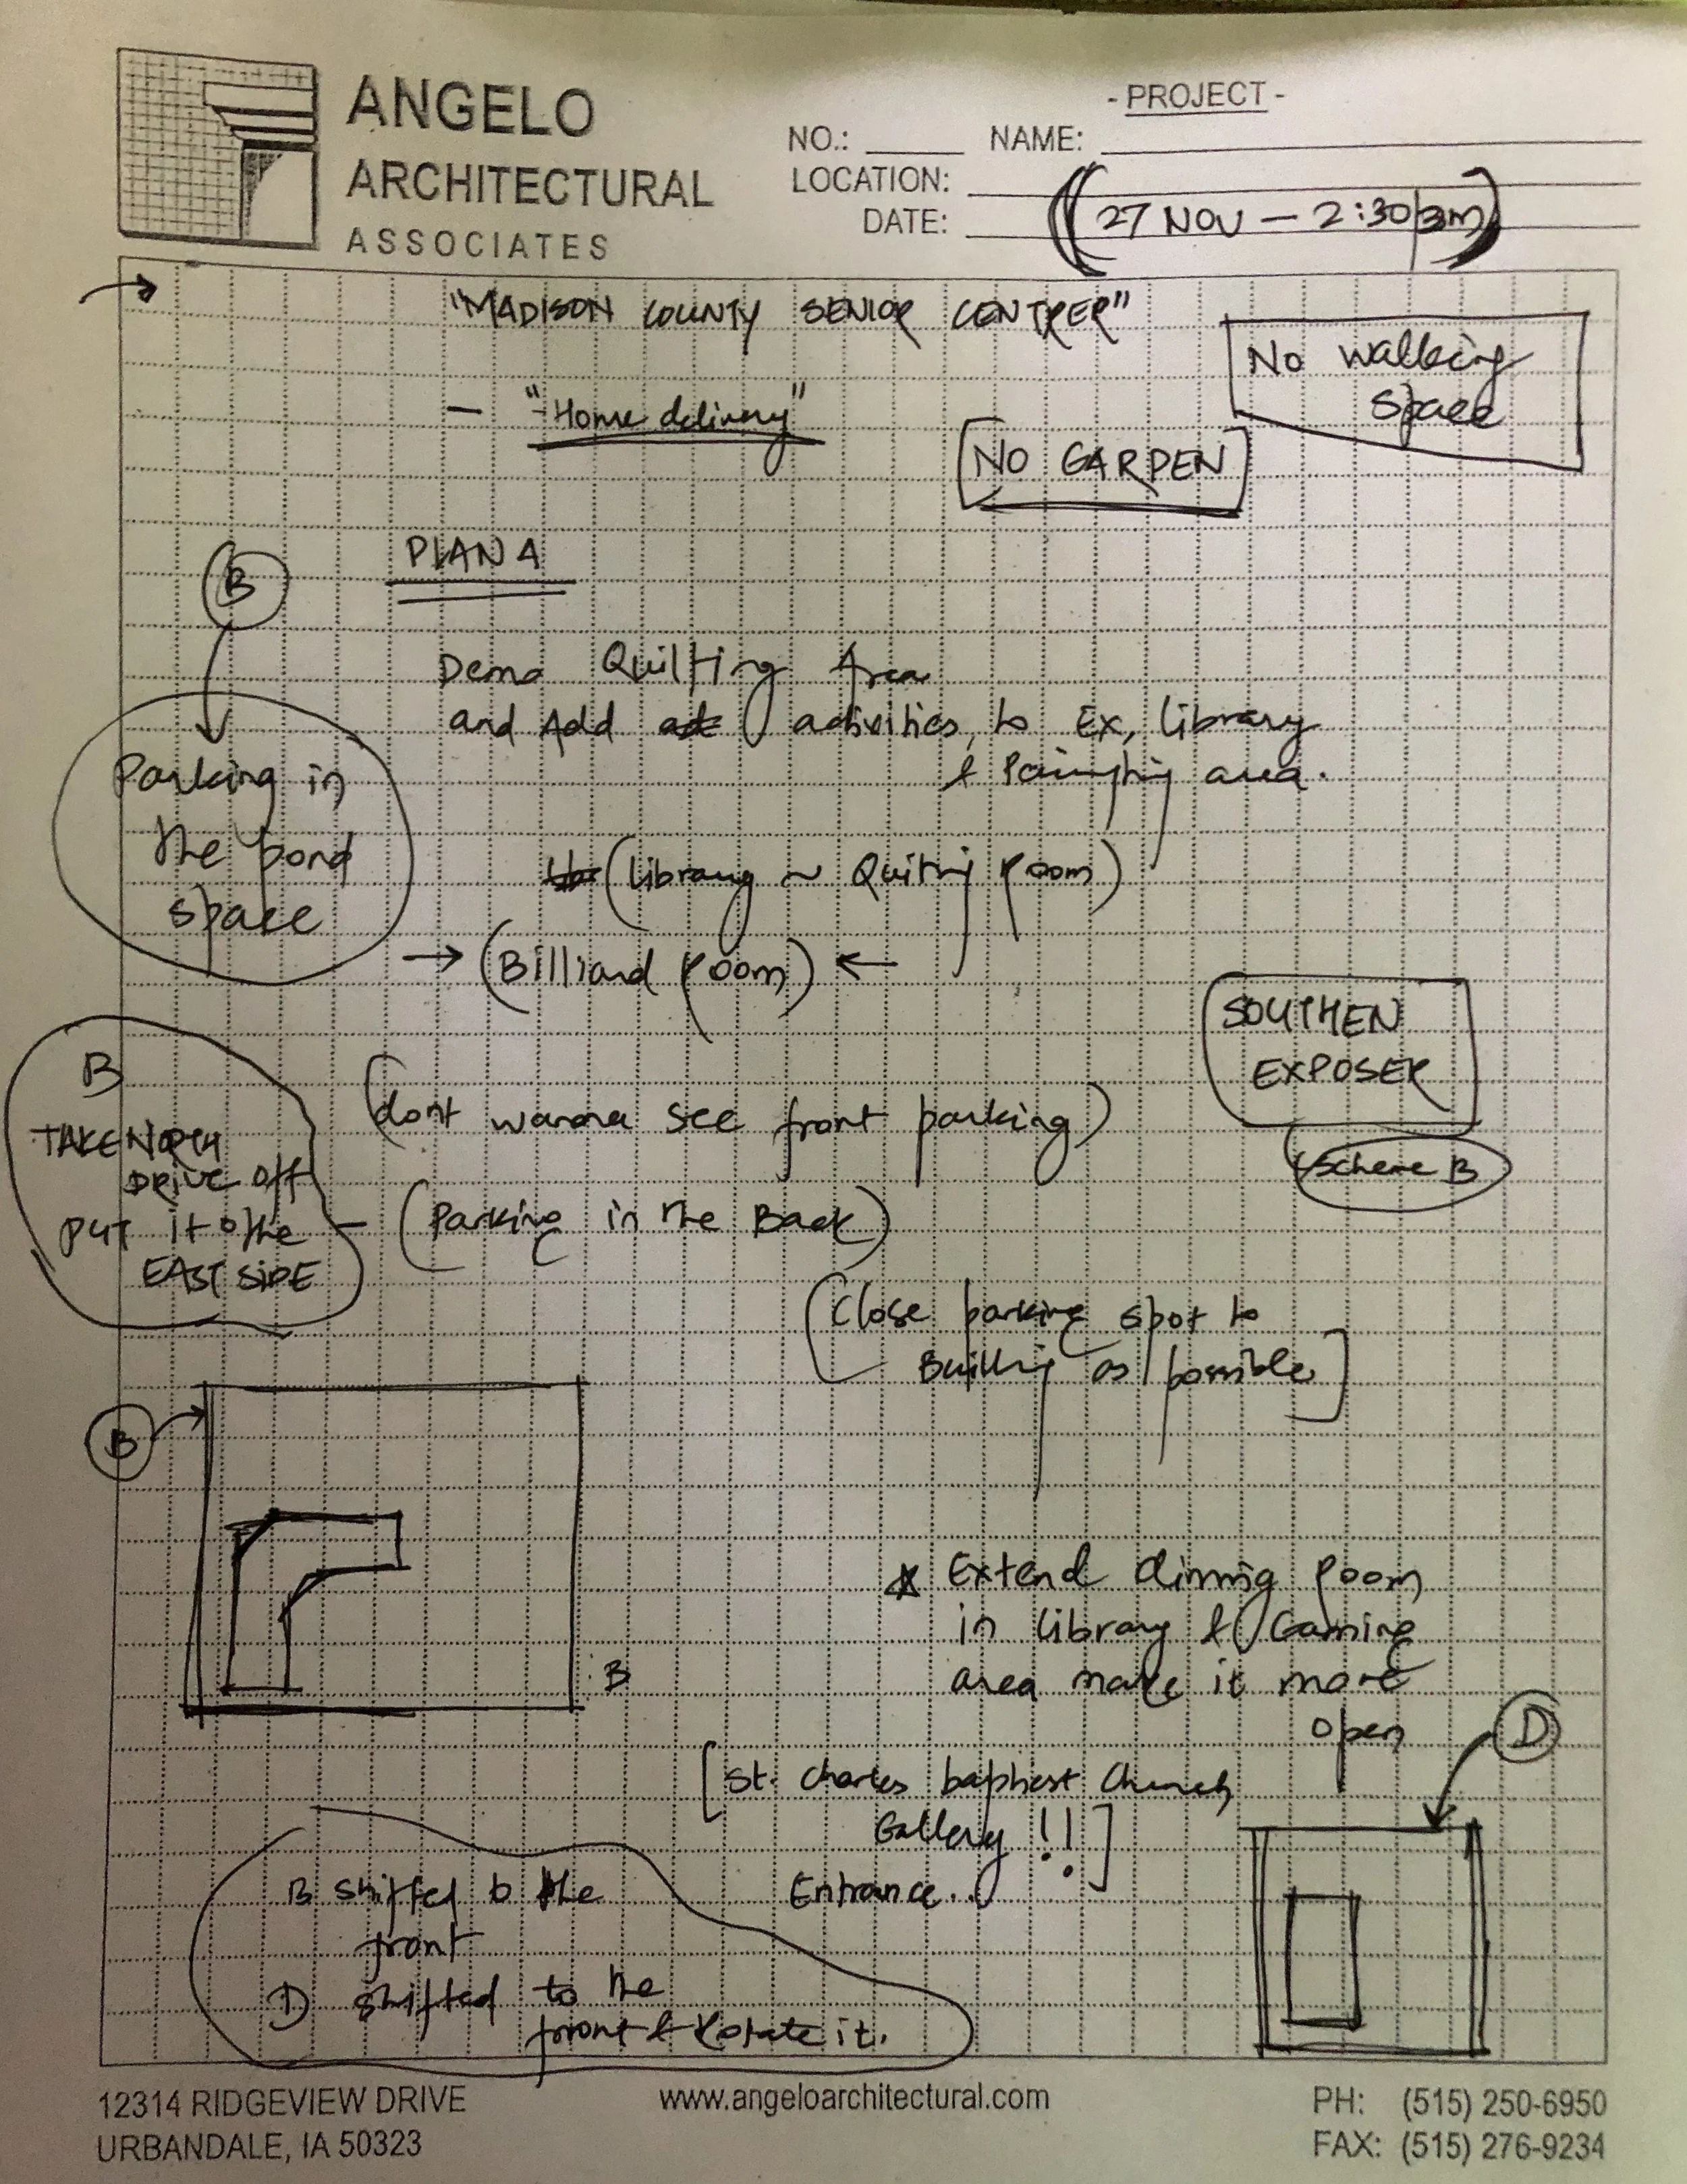 ANGELO
ARCHITECTURAL
ASSOCIATES
- PROJECT -
NO.: NAME:
LOCATION:
DATE: (27 NOV — 2:30
"MADISON COUNTY SENIOR CENTRER"
No walking
space
— "Home delivery"
NO GARDEN
B
PLAN A
Demo Quilting Area
and Add activities, to Ex, library
& Painting area.
Parking in
the pond
space
(library ~ Quiltig Room)
→ (Billiard Room) ←
SOUTHEN
EXPOSER
Scheme B
B
TAKE NORTH
DRIVE off
PUT it to the
EAST SIDE
(dont wanna see front parking)
— (Parking in the Back)
(Close parking spot to
Builing as possible]
B
B
* Extend dinnig Room
in library & Gaming
area make it more
open
D
[St. Charles baptiest Church
Gallery !!]
Entrance..
B shifted to the
front
D shifted to the
front & Rotate it.
12314 RIDGEVIEW DRIVE
URBANDALE, IA 50323
www.angeloarchitectural.com
PH: (515) 250-6950
FAX: (515) 276-9234